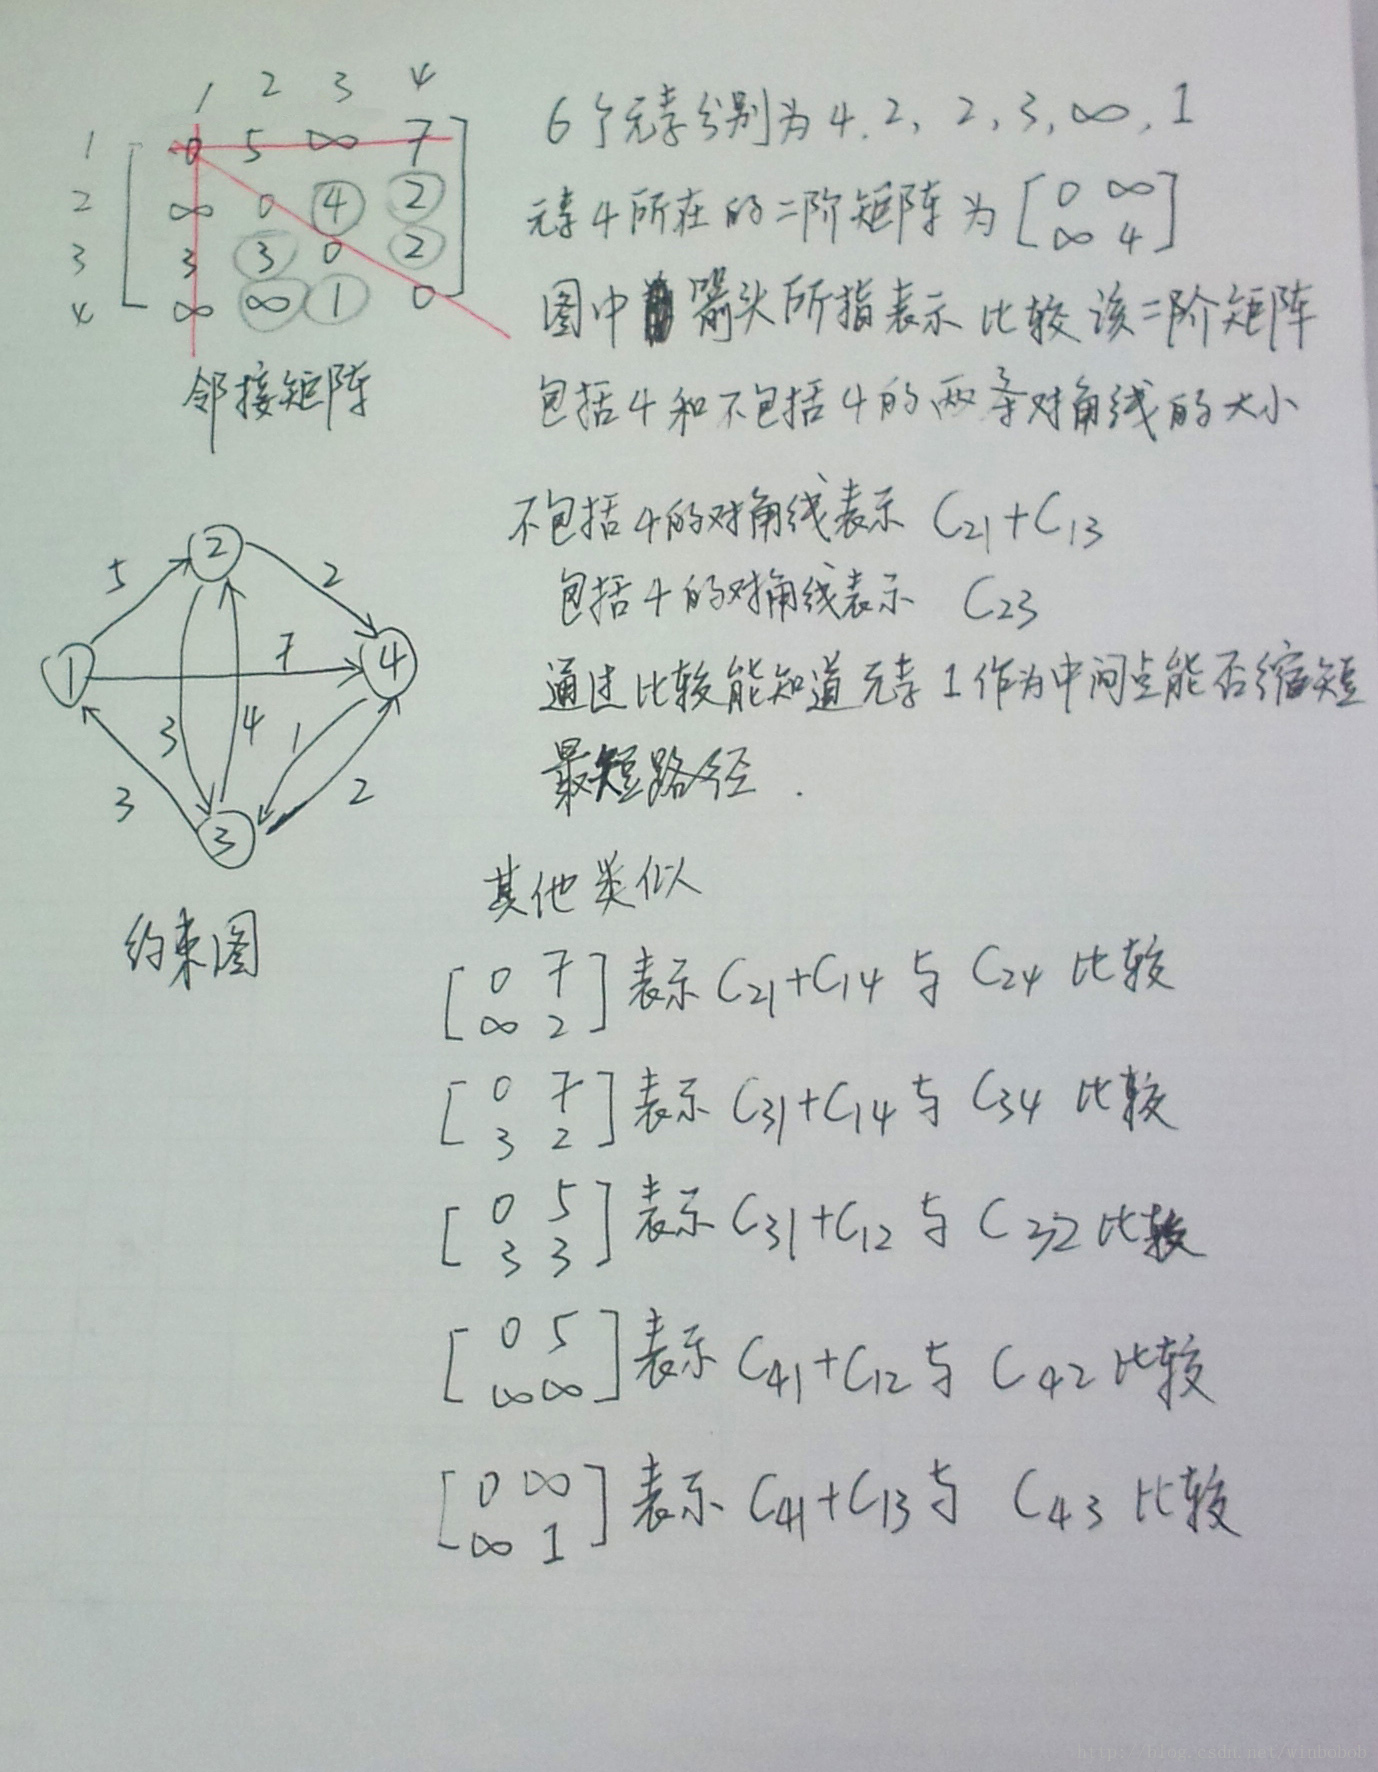 1 2 3 4
1 0 5 ∞ 7
2 ∞ 0 4 2
3 3 3 0 2
4 ∞ ∞ 1 0
邻接矩阵
6个元素分别为 4, 2, 2, 3, ∞, 1
元素4所在的二阶矩阵为 [0 ∞
∞ 4]
图中 箭头所指表示比较该二阶矩阵
包括4和不包括4的两条对角线的大小
不包括4的对角线表示 C21+C13
包括4的对角线表示 C23
通过比较能知道元素1作为中间点能否缩短
最短路径.
2
5 2
1 7 4
3 4 1
3 2
3
约束图
其他类似
[0 7
∞ 2] 表示 C21+C14 与 C24 比较
[0 7
3 2] 表示 C31+C14 与 C34 比较
[0 5
3 3] 表示 C31+C12 与 C32 比较
[0 5
∞ ∞] 表示 C41+C12 与 C42 比较
[0 ∞
∞ 1] 表示 C41+C13 与 C43 比较
http://blog.csdn.net/winbobob